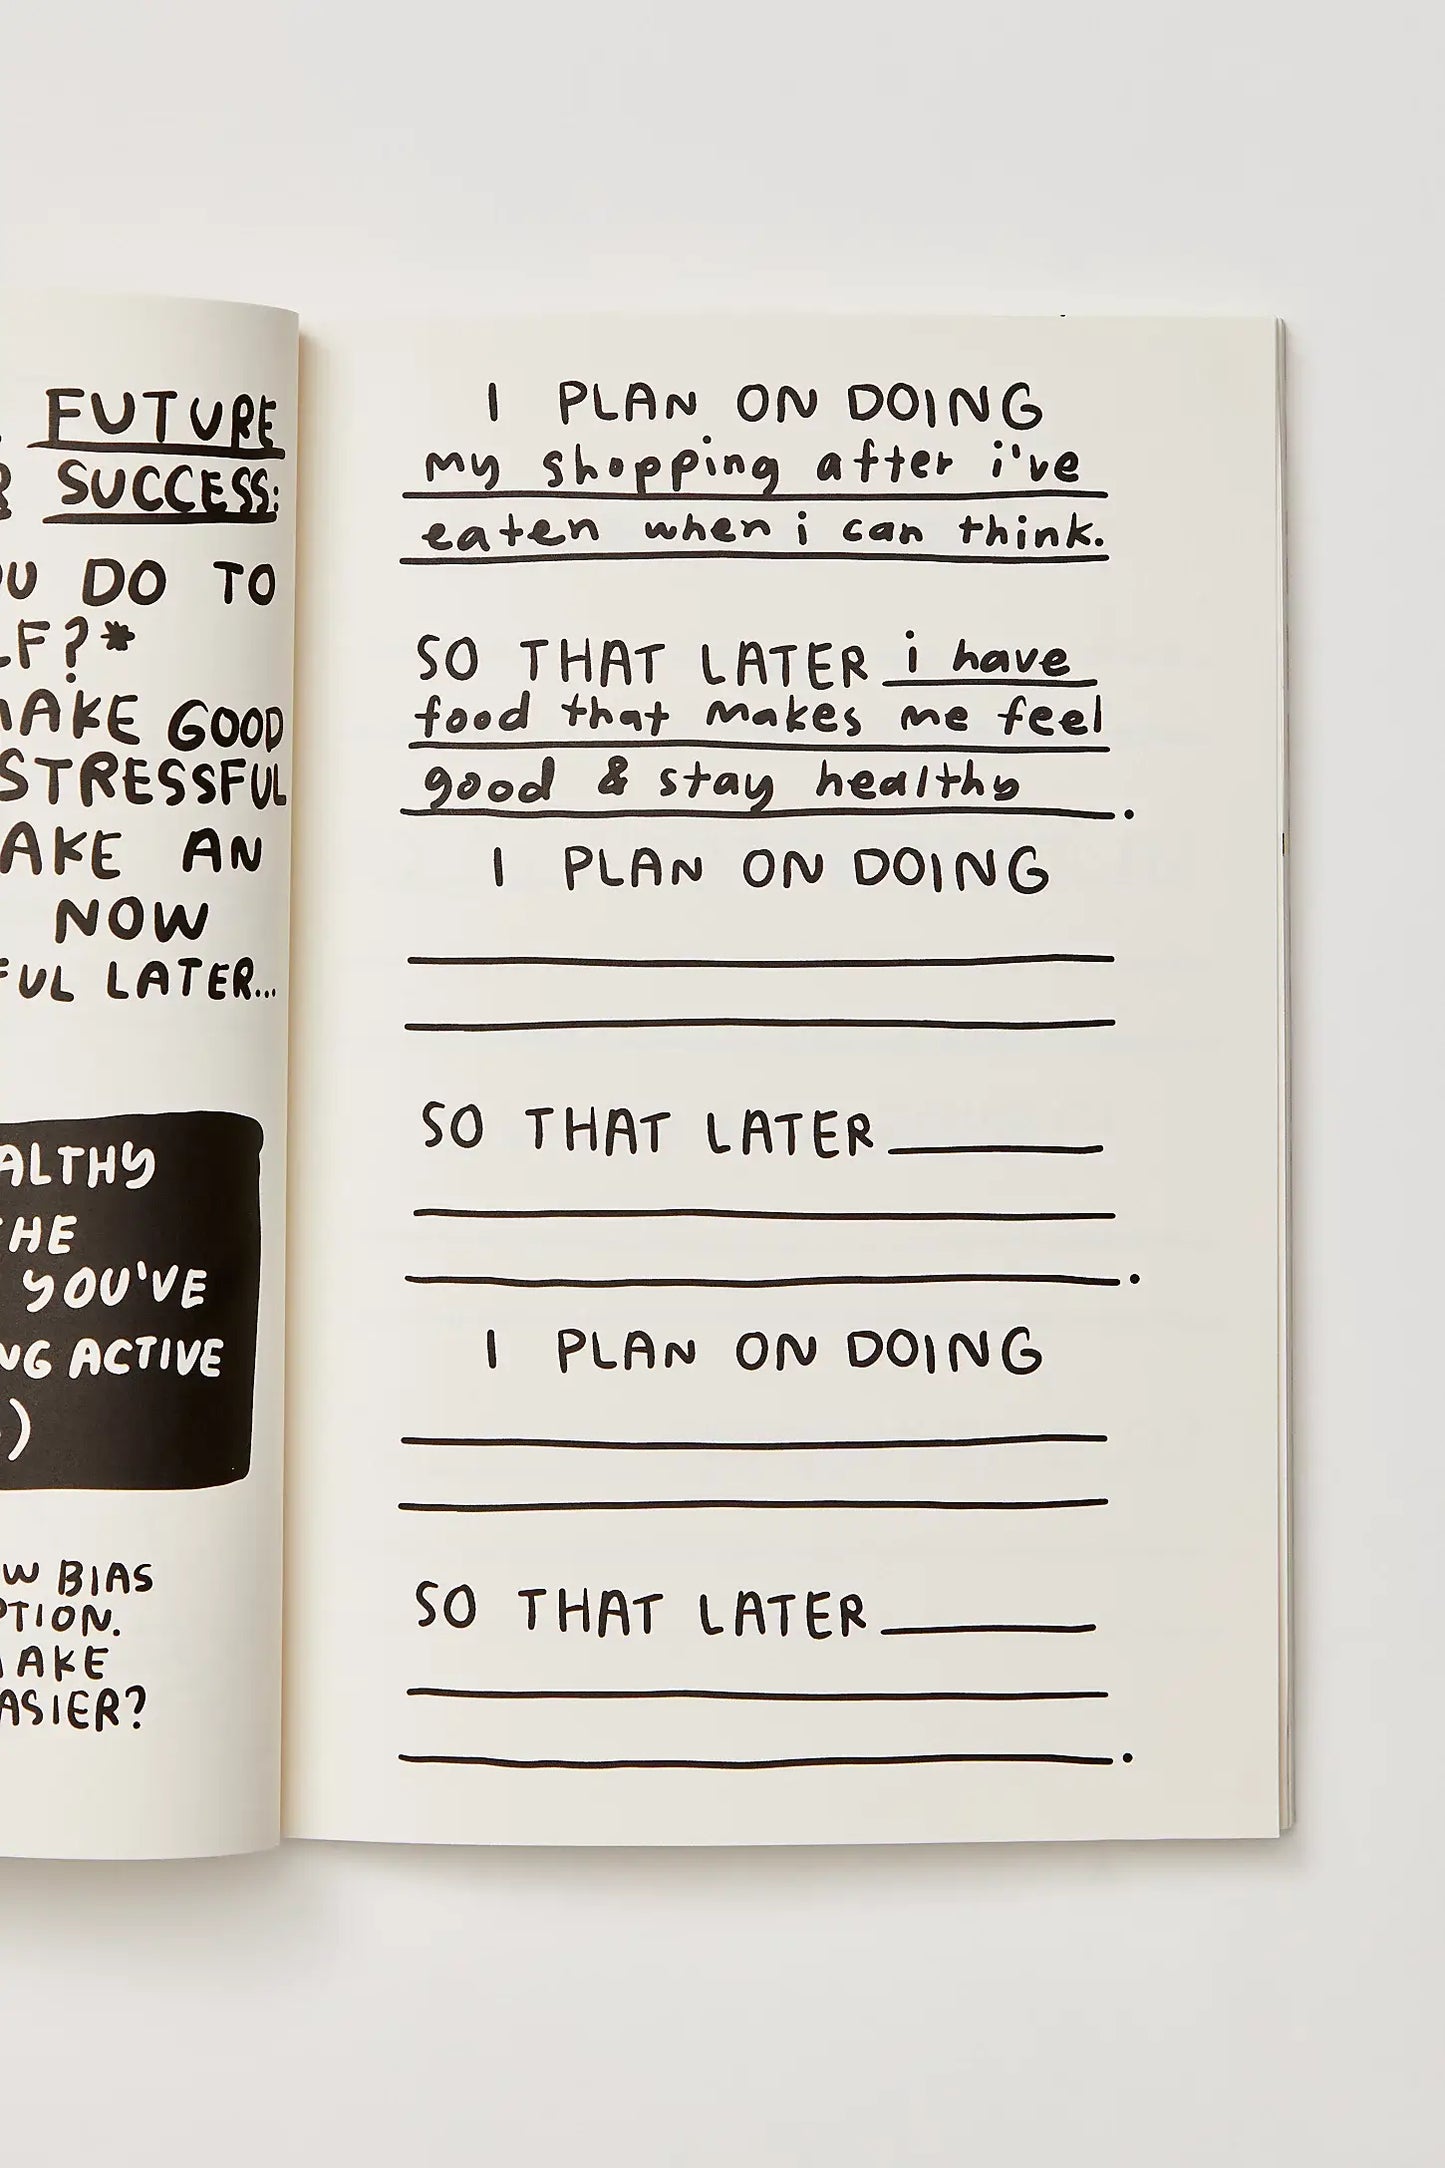 FUTURE
SUCCESS:
DO TO
MAKE GOOD
STRESSFUL
AN
NOW
LATER...
THE
YOU'VE
ACTIVE
BIAS
I PLAN ON DOING
my shopping after i've
eaten when i can think.
SO THAT LATER i have
food that makes me feel
good & stay healthy.
I PLAN ON DOING
SO THAT LATER
.
I PLAN ON DOING
SO THAT LATER
.